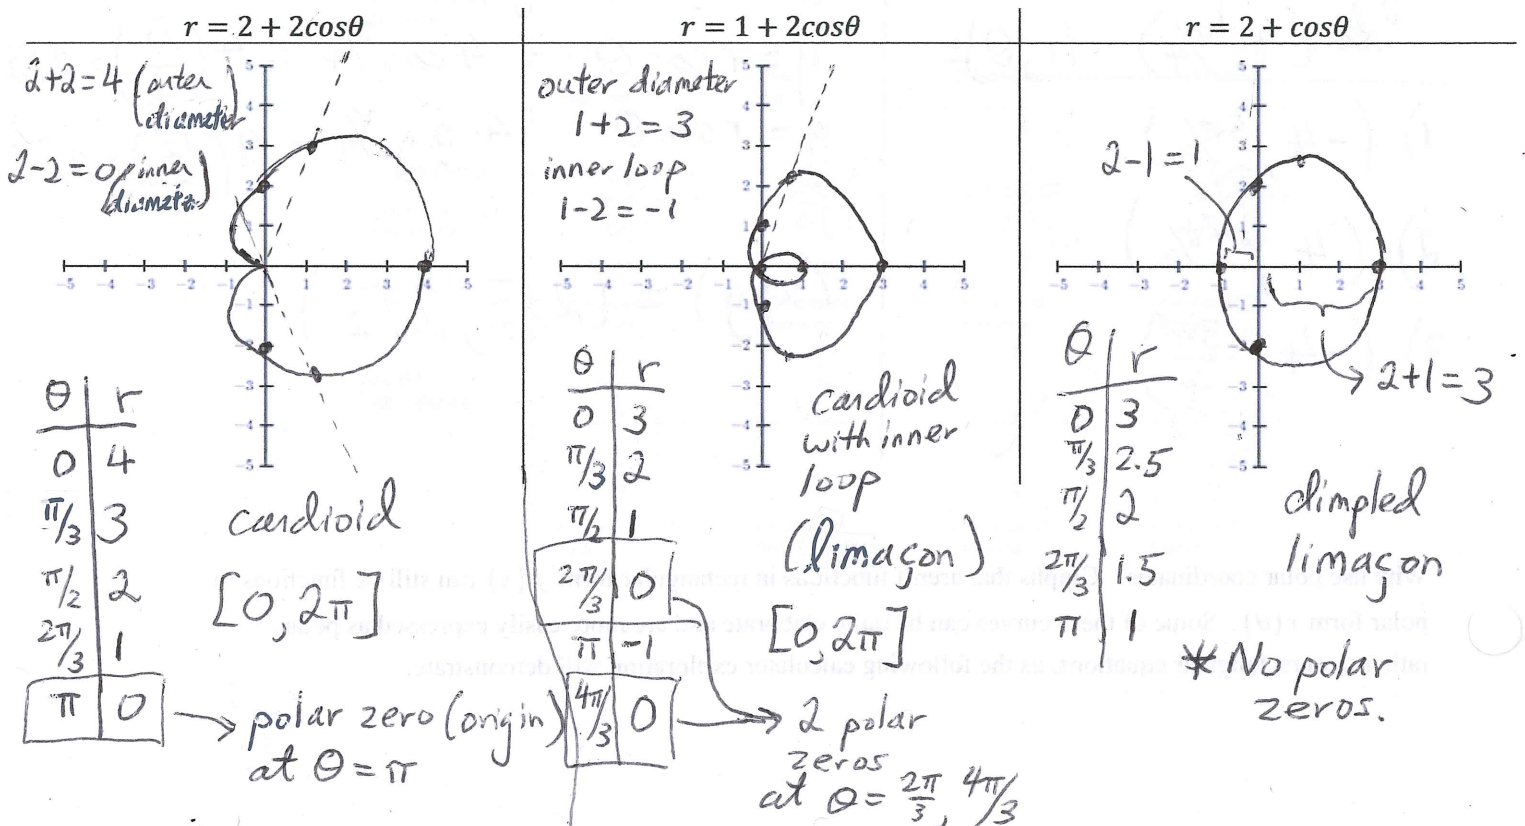 r = 2 + 2cosθ
2+2=4 (outer diameter)
2-2=0 (inner diameter)
5
4
3
2
1
-5 -4 -3 -2 -1 1 2 3 4 5
-1
-2
-3
-4
-5
θ | r
0 | 4
π/3 | 3
π/2 | 2
2π/3 | 1
π | 0
cardioid
[0, 2π]
polar zero (origin)
at θ = π
r = 1 + 2cosθ
outer diameter
1+2=3
inner loop
1-2=-1
5
4
3
2
1
-5 -4 -3 -2 -1 1 2 3 4 5
-1
-2
-3
-4
-5
θ | r
0 | 3
π/3 | 2
π/2 | 1
2π/3 | 0
π | -1
4π/3 | 0
cardioid
with inner
loop
(limaçon)
[0, 2π]
2 polar
zeros
at θ = 2π/3, 4π/3
r = 2 + cosθ
2-1=1
5
4
3
2
1
-5 -4 -3 -2 -1 1 2 3 4 5
-1
-2
-3
-4
-5
2+1=3
θ | r
0 | 3
π/3 | 2.5
π/2 | 2
2π/3 | 1.5
π | 1
dimpled
limaçon
* No polar
zeros.